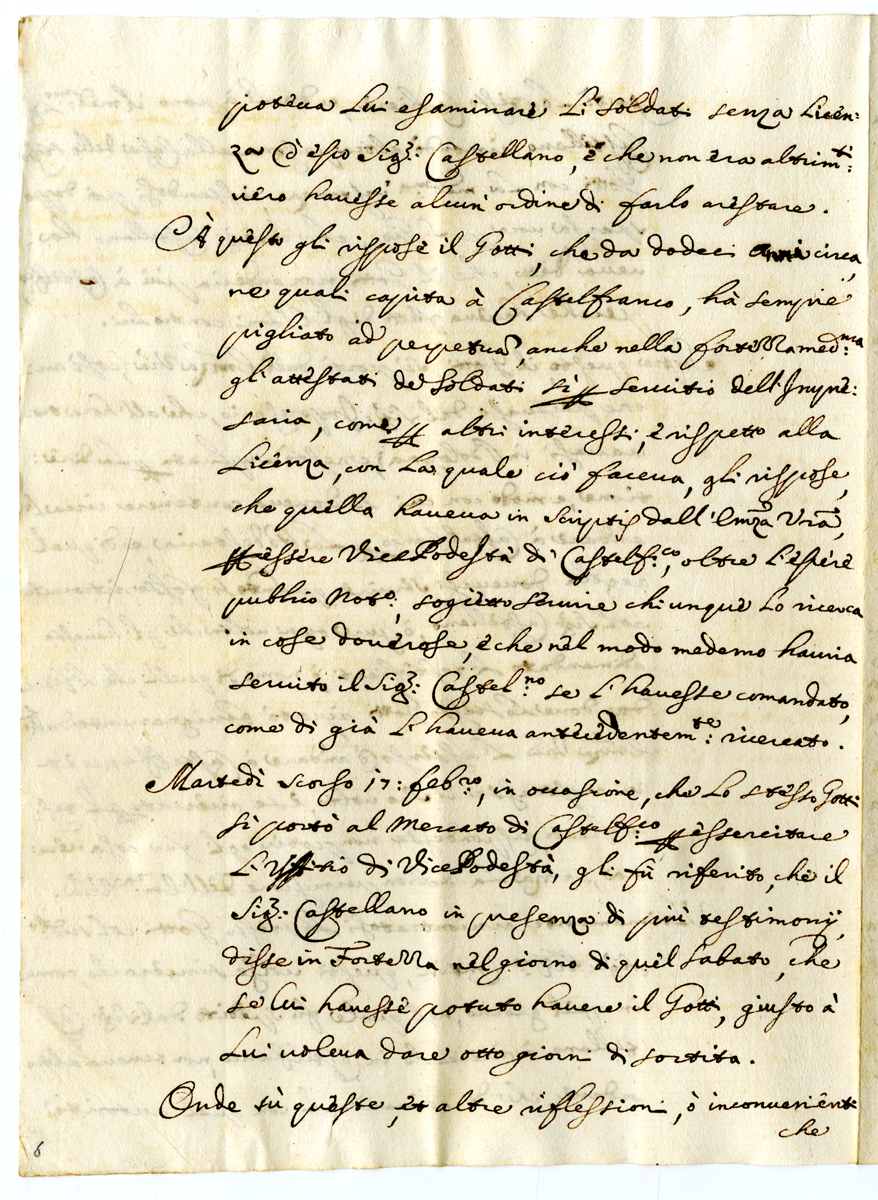 poteua Lui esaminare Li soldati senza Licen:
za d'esso Sig.r: Castellano, e che non era altrim.ti:
uero hauesse alcun ordine di farlo arestare.
A questo gli rispose il Gotti, che da dodeci anni circa,
ne quali capita à Castelfranco, hà sempre
pigliato ad perpetuã, anche nella fortezza med.ma
gli attestati de Soldati sì p seruitio dell'Impre:
saria, come p altri interessi, e rispetto alla
Licenza, con La quale ciò faceua, gli rispose,
che quella haueua in scriptis dall'Emza Vra,
p essere Vice Podestà di Castelf.co, oltre L'essere
publico Not.o, sogietto seruire chiunque Lo ricerca
in cose douerose, e che nel modo medemo hauria
seruito il Sig.r: Castel.no se L'hauesse comandato,
come di già L'haueua antecedentem.te: ricercato.
Martedì scorso 17: feb.ro, in occasione, che Lo stesso Gotti
si portò al Mercato di Castelf.co p essercitare
L'Uffitio di Vice Podestà, gli fù riferito, che il
Sig.r: Castellano in presenza di più testimonij,
disse in Fortezza nel giorno di quel Sabato, che
se lui hauesse potuto hauere il Gotti, giusto à
Lui uoleua dare otto giorni di sortita.
Onde sù queste, et altre riflessioni, ò inconuenienti
che
6